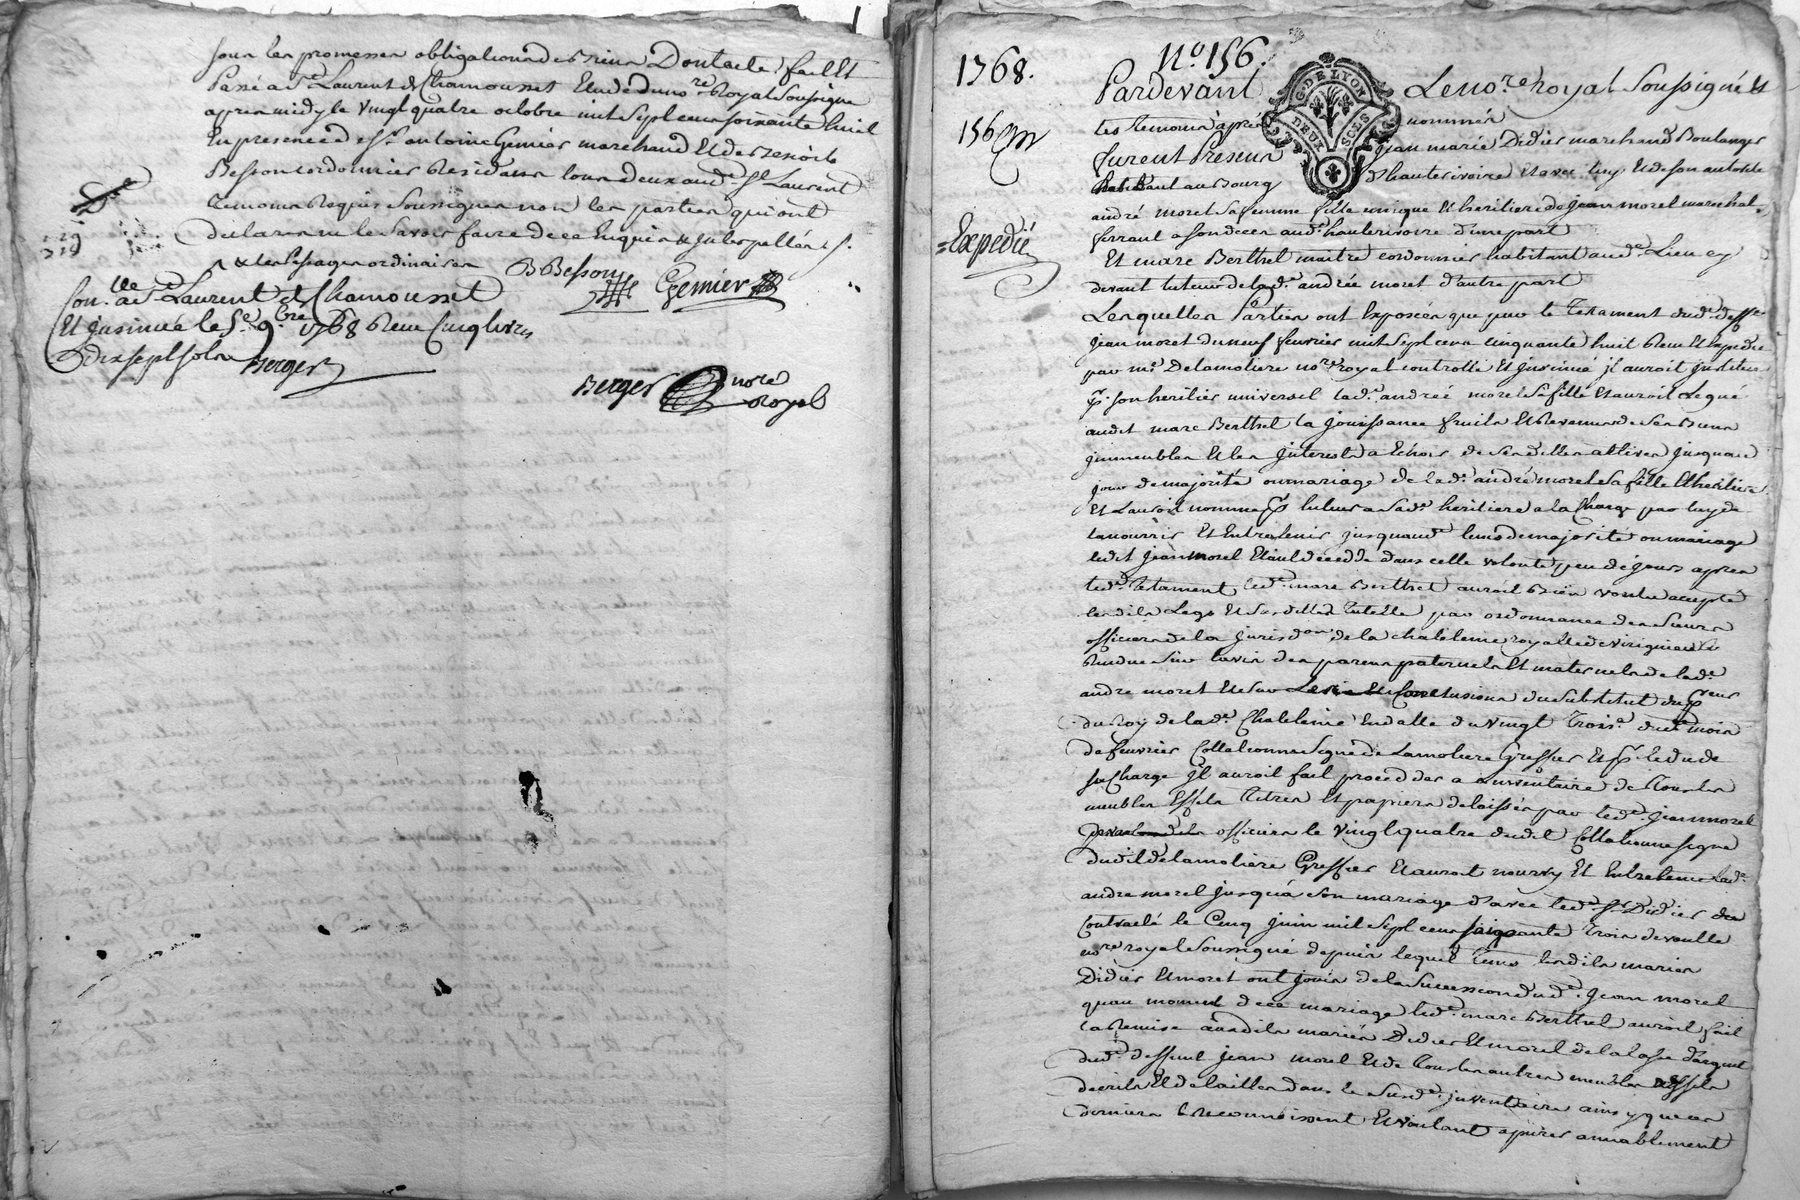 sous les promesses obligations de Biens Dont acte fait Et
Passé a St Laurent de Chamousset Etude du no.re Royal Soussigné
apres midy le vingt quatre octobre mil Sept cens soixante huit
En presence de sr antoine Gemier marchand Et de Benoit
Besson cordonnier Residans tous deux aud. St Laurent
temoins Requis Soussignes non les parties qui ont
declaré ne le Savoir faire de ce Enquis & Interpellés
& les passages ordinaires
BBesson Gemier
Con.lle a St Laurent de Chamousset
Et Insinué le 5e 9.bre 1768 Reçu Cinq livres
dix sept sols Berger
Berger nore
Royal
1768. No. 156.
Pardevant Le no.re Royal Soussigné Et
156 tes temoins après nommés
furent Presens jean marie Didier marchand Boulanger
habitant au Bourg d'hauterivoire Et avec luy Et de son autorité
andré moret Sa femme fille unique Et heritiere de jean moret marechal
Expedié
ferrant a son deces aud. hauterivoire d'une part
Et marc Berthet maitre cordonnier habitant aud. Lieu cy
devant tuteur de lad. andrée moret d'autre part
Lesquelles Parties ont Exposées que par le Testament dud. defft
jean moret du neuf fevrier mil Sept cens cinquante huit Reçu Et Expedié
par me Delamoliere no.re royal controllé Et Insinué il auroit institué
pr. son heritier universel lad. andrée moret Sa fille Et auroit Legué
audit marc Berthet la jouissance fruits Et Revenus de Ses Biens
immeubles Et les Interets a Echoir de Ses dettes actives jusqu'au
jour de majorité ou mariage de lad. andré moret Sa fille Et heritiere
Et L'auroit nommé pr tuteur a Sad. heritiere a la Charge par luy de
la nourrir Et Entretenir jusqu'aud. tems de majorité ou mariage
ledit jean moret Etant decedde dans cette volonté peu de jours apres
led. Testament led. marc Berthet auroit Bien voulu accepté
lesdits Legs Et Susditte Tutelle par ordonnance des Sieurs
officiers de la Jurisd.on de la chatelenie royalle de
Rendue Sur lavis des parens paternels Et maternels de lad.
andre moret Et Sur Les Conclusions du Substitut du pr eur
du Roy de lad. Chatelenie En datte du vingt Trois.e dud. mois
de fevrier Collationné Signé de Lamoliere Greffier Et pr. Ledu de
sa Charge Il auroit fait procedder a inventaire de Tous les
meubles Effets Titres Et papiers delaissés par led. jean moret
officiers le vingt quatre dudit Collationné signé
dudit delamoliere Greffier Et auroit nourry Et Entretenu lad.
andre moret jusqu'a Son mariage d'avec led. Sr Didier
Contracté le Cinq juin mil Sept cens soixante Trois devant le
no.re royal Soussigné depuis lequel Tems lesdits mariés
Didier Et moret ont jouis de la Succession dud. jean moret
quau moment de ce mariage led. marc Berthet auroit fait
la Remise auxdits mariés Didier Et moret de la Somme d'argent
dud. deffunt jean moret Et de Tous les autres meubles Effets
decrits Et detaillés dans le Susd. inventaire ainsy que ces
derniers le reconnoissent Et voulant apurer amiablement